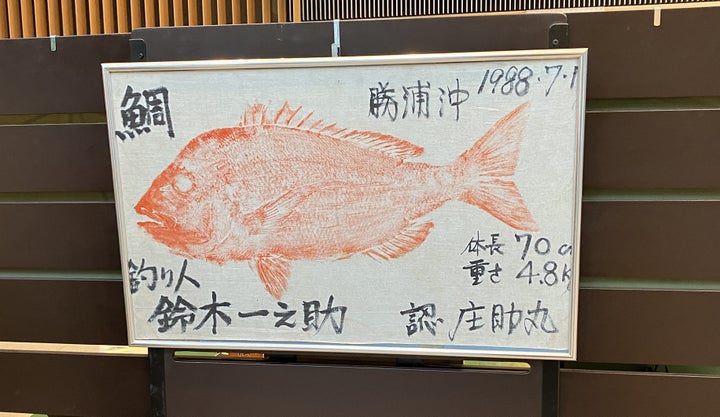 鯛
勝浦沖
1988・7・1
体長 70c
重さ 4.8k
釣り人
鈴木一之助
認 庄助丸